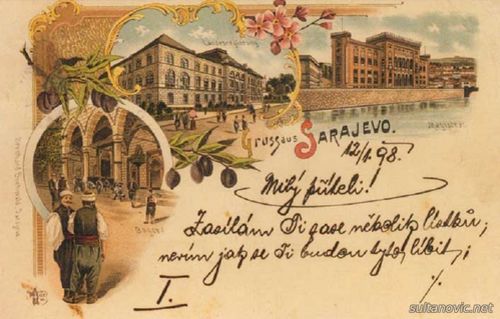 Landesregierung
Gruss aus SARAJEVO.
12/1 98.
Milý příteli!
Zasílám Ti zase několik lístků;
nevím jak se Ti budou tyto líbit;
I.
·/.
sultanovic.net